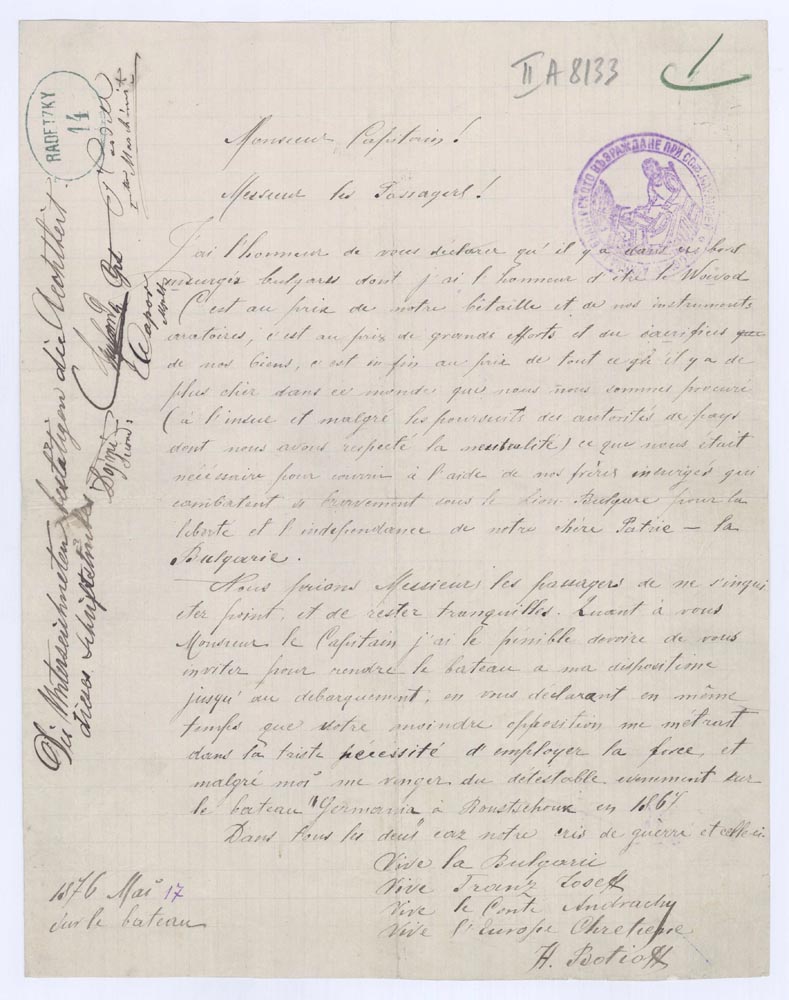 II A 8133
RADETZKY
14
Monsieur Capitain!
Messieur les Passagers!
J'ai l'honneur de vous déclarer qu'il y a dans ce bord
insurgés bulgars dont j'ai l'honneur d'être le Woivod
C'est au prix de notre bétaille et de nos instruments
aratoires, c'est au prix de grands efforts et du sacrifices
de nos biens, c'est in fin au prix de tout ce qu'il y a de
plus cher dans ce monde que nous nous sommes procuré
(à l'insue et malgré les poursuits des autorités de pays
dont nous avons respecté la neutralité) ce que nous était
nécéssaire pour courrir à l'aide de nos frères insurgés qui
combatent si bravement sous le Lion Bulgare pour la
liberté et l'independance de notre chère Patrie – la
Bulgarie.
Nous prions Messieurs les passagers de ne s'inquié
ter point, et de rester tranquilles. Quant à vous
Monsieur le Capitain j'ai le penible devoire de vous
inviter pour rendre le bateau a ma disposition
jusqu'au debarquement, en vous déclarant en même
temps que votre moindre opposition me métrait
dans la triste nécéssité d'employer la force et
malgré moi me venger du déléstable evenement sur
le bateau "Germania" à Roustschouk en 1867.
Dans tous les deux caz notre cris de guerre et celle-ci.
Vive la Bulgarie
Vive Franz Joseff
Vive le Conte Andrachy
Vive l'Europe Chretiene
H. Botioff
1876 Mai 17
Sur le bateau
Die Unterzeichneten bestätigen die Aechtheit
dieses Schriftstückes